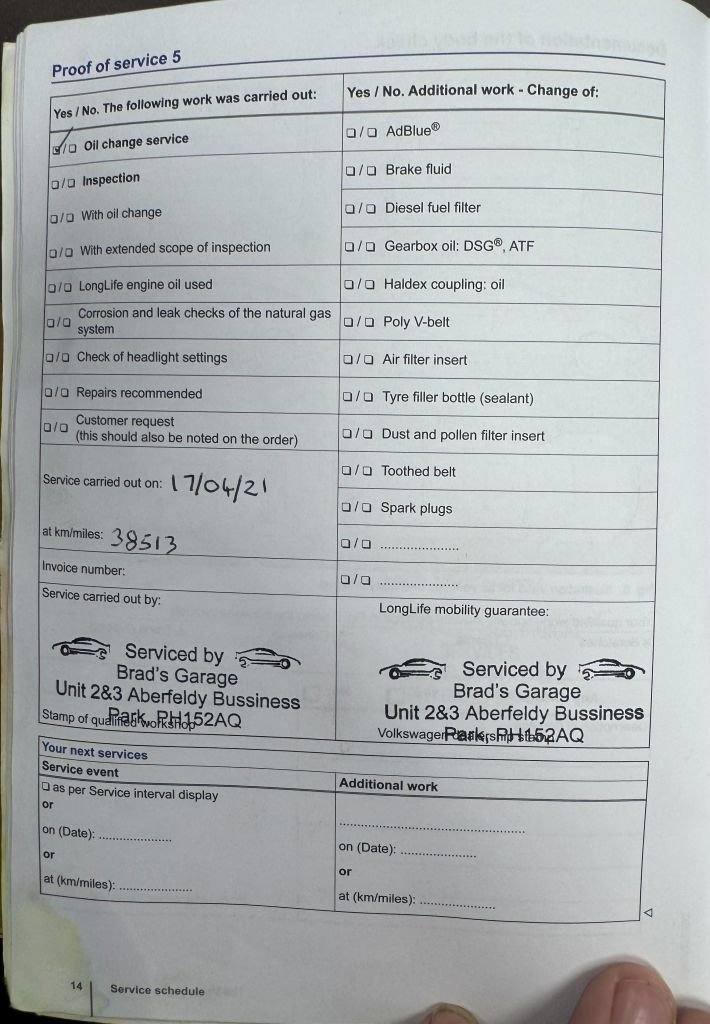 Proof of service 5
Yes / No. The following work was carried out:
☑/☐ Oil change service
☐/☐ Inspection
☐/☐ With oil change
☐/☐ With extended scope of inspection
☐/☐ LongLife engine oil used
☐/☐ Corrosion and leak checks of the natural gas
system
☐/☐ Check of headlight settings
☐/☐ Repairs recommended
☐/☐ Customer request
(this should also be noted on the order)
Service carried out on: 17/04/21
at km/miles: 38513
Invoice number:
Service carried out by:
Serviced by
Brad's Garage
Unit 2&3 Aberfeldy Bussiness
Park, PH152AQ
Stamp of qualified workshop
Yes / No. Additional work - Change of:
☐/☐ AdBlue®
☐/☐ Brake fluid
☐/☐ Diesel fuel filter
☐/☐ Gearbox oil: DSG®, ATF
☐/☐ Haldex coupling: oil
☐/☐ Poly V-belt
☐/☐ Air filter insert
☐/☐ Tyre filler bottle (sealant)
☐/☐ Dust and pollen filter insert
☐/☐ Toothed belt
☐/☐ Spark plugs
☐/☐ .....................
☐/☐ .....................
LongLife mobility guarantee:
Serviced by
Brad's Garage
Unit 2&3 Aberfeldy Bussiness
Park, PH152AQ
Volkswagen dealership stamp
Your next services
Service event
☐ as per Service interval display
or
on (Date): ....................
or
at (km/miles): ....................
Additional work
..................................................
on (Date): .....................
or
at (km/miles): .....................
14 Service schedule